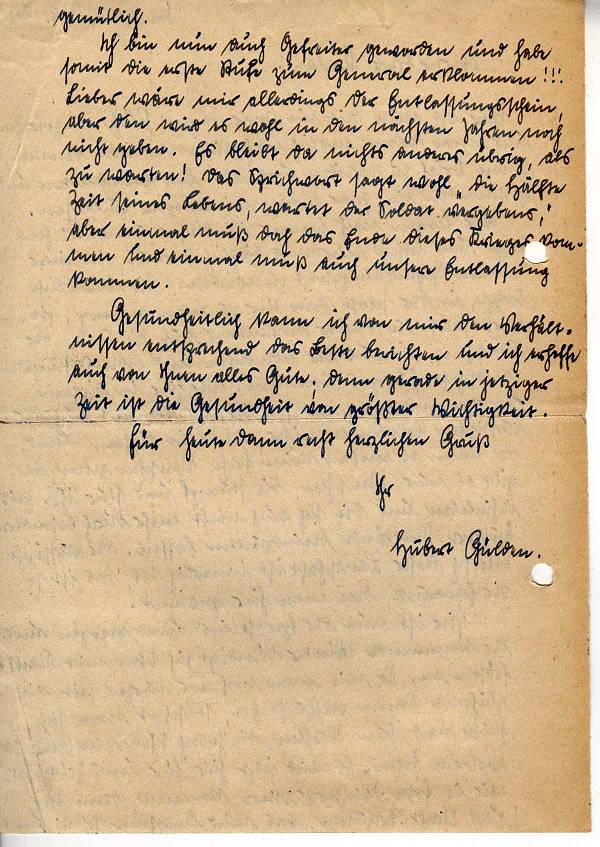 gemütlich.
Ich bin nun auch Gefreiter geworden und habe
somit die erste Stufe zum General erklommen!!!
Lieber wäre mir allerdings der Entlassungsschein,
aber den wird es wohl in den nächsten Jahren noch
nicht geben. Es bleibt da nichts anderes übrig, als
zu warten! Das Sprichwort sagt wohl „die Hälfte
Zeit seines Lebens, wartet der Soldat vergebens,"
aber einmal muß doch das Ende dieses Krieges kom-
men und einmal muß auch unsere Entlassung
kommen.
Gesundheitlich kann ich von mir den Verhält-
nissen entsprechend das Beste berichten und ich erhoffe
auch von Ihnen alles Gute; denn gerade in jetziger
Zeit ist die Gesundheit von größter Wichtigkeit.
Für heute dann recht herzlichen Gruß
Ihr
Hubert Gülden.